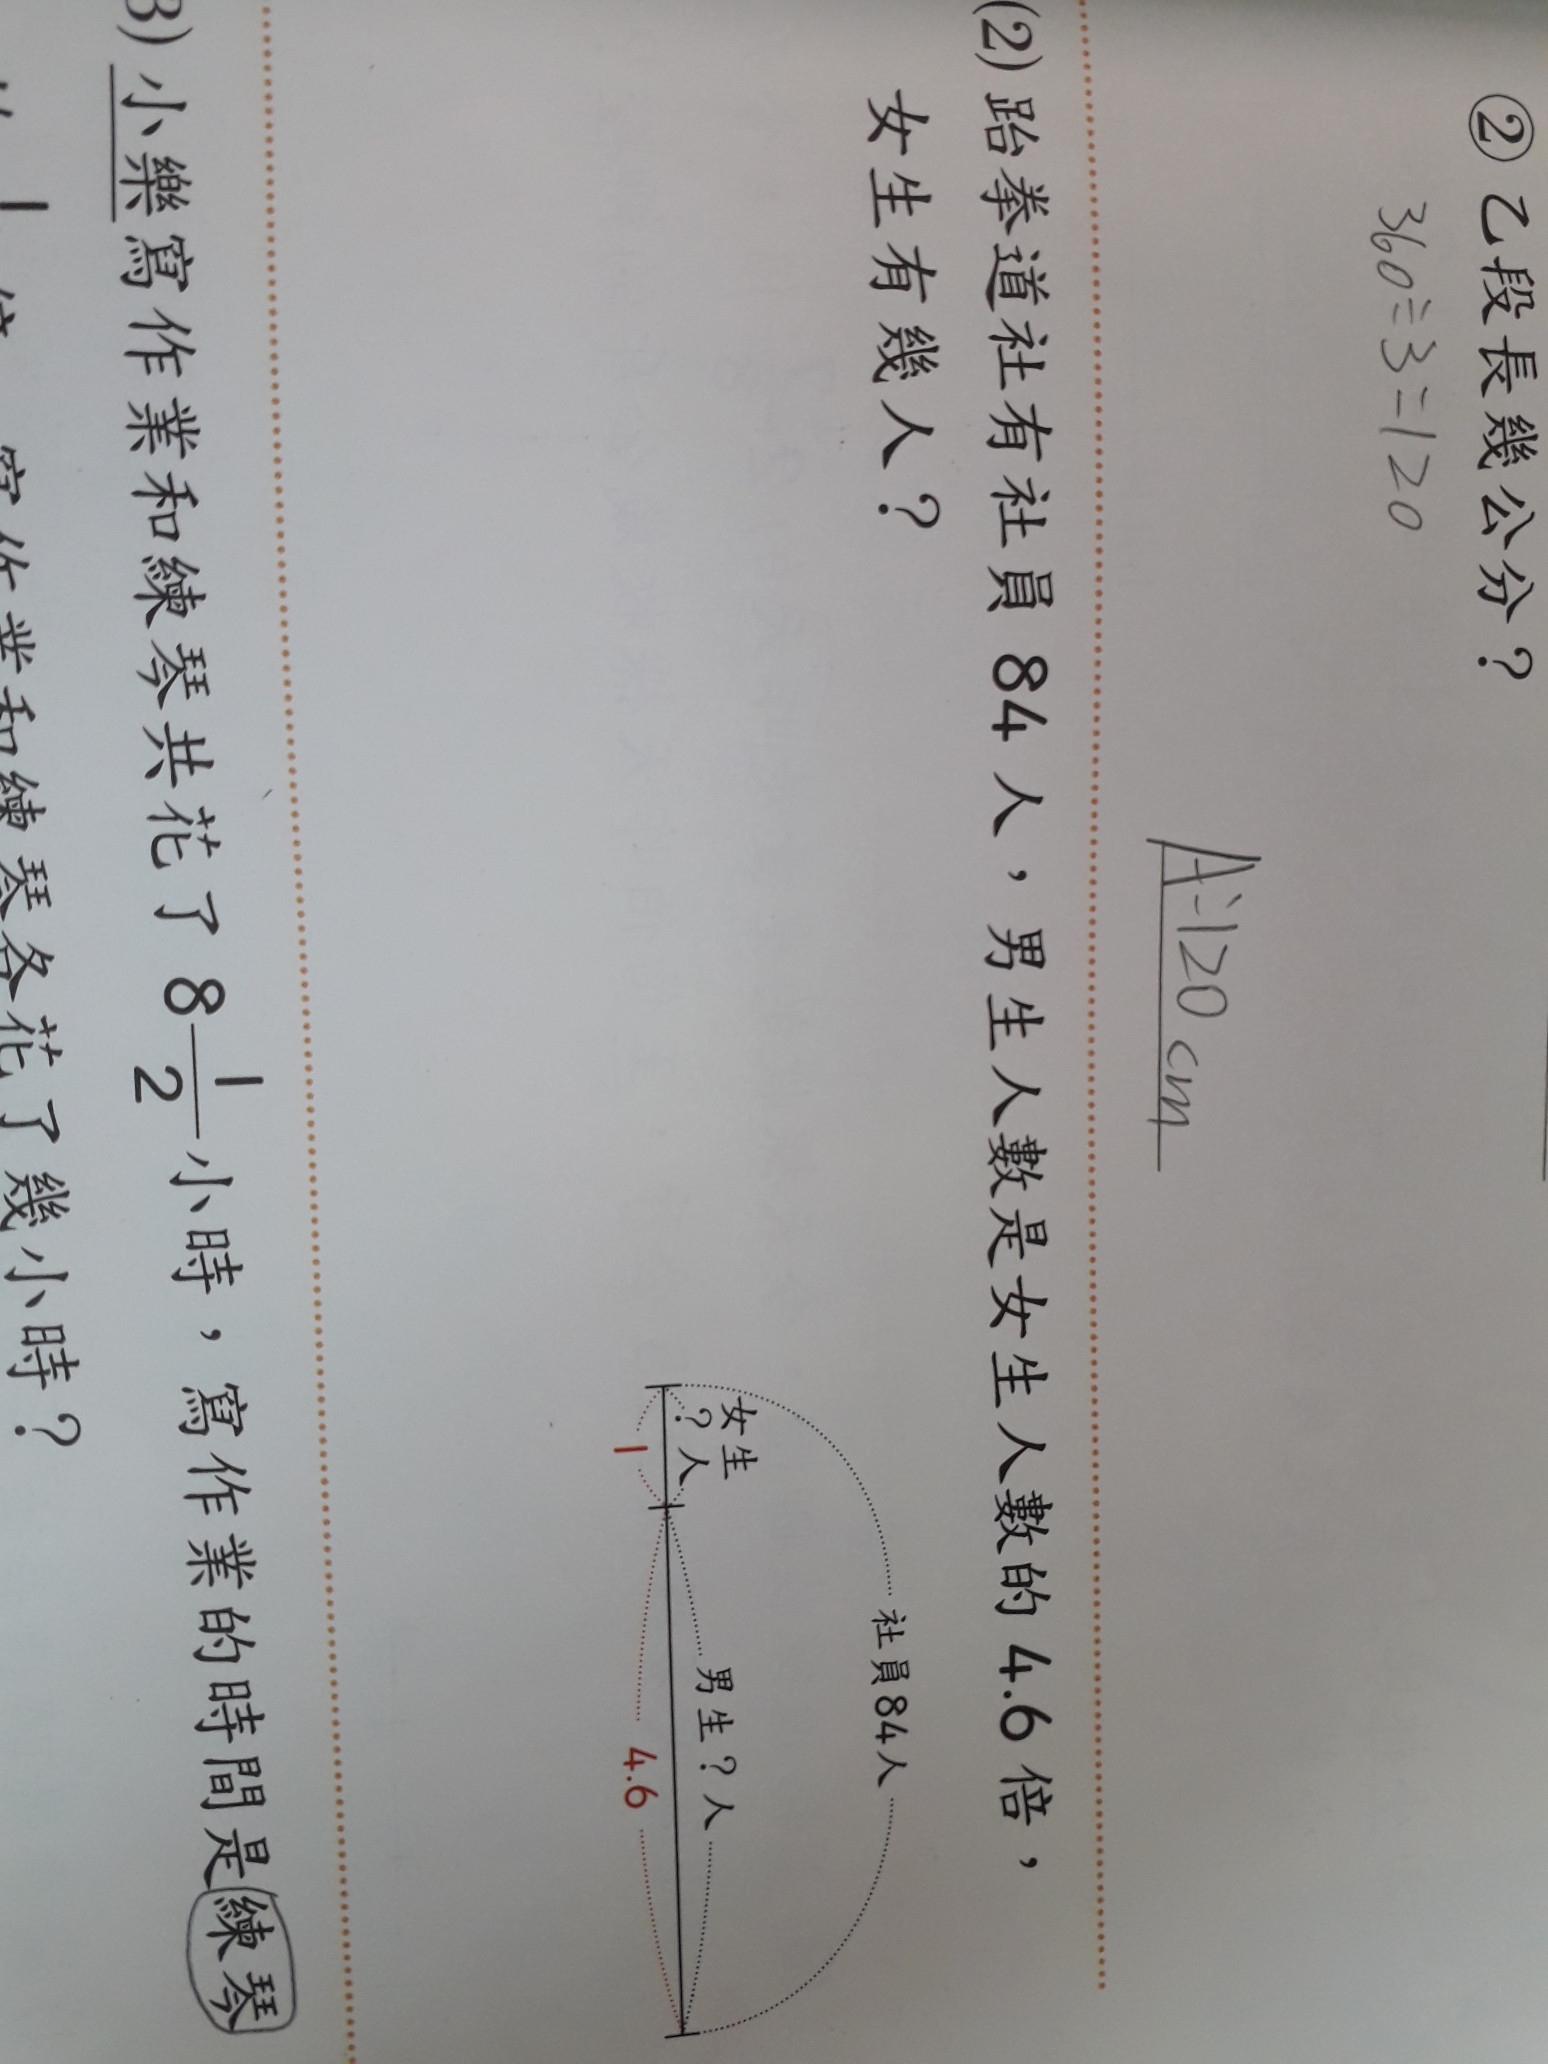 ② 乙段長幾公分？
360÷3=120
A:120cm
(2) 跆拳道社有社員 84 人，男生人數是女生人數的 4.6 倍，
女生有幾人？
社員84人
女生
？人
男生？人
1
4.6
3) 小樂寫作業和練琴共花了 8 1/2 小時，寫作業的時間是練琴
寫作業和練琴各花了幾小時？